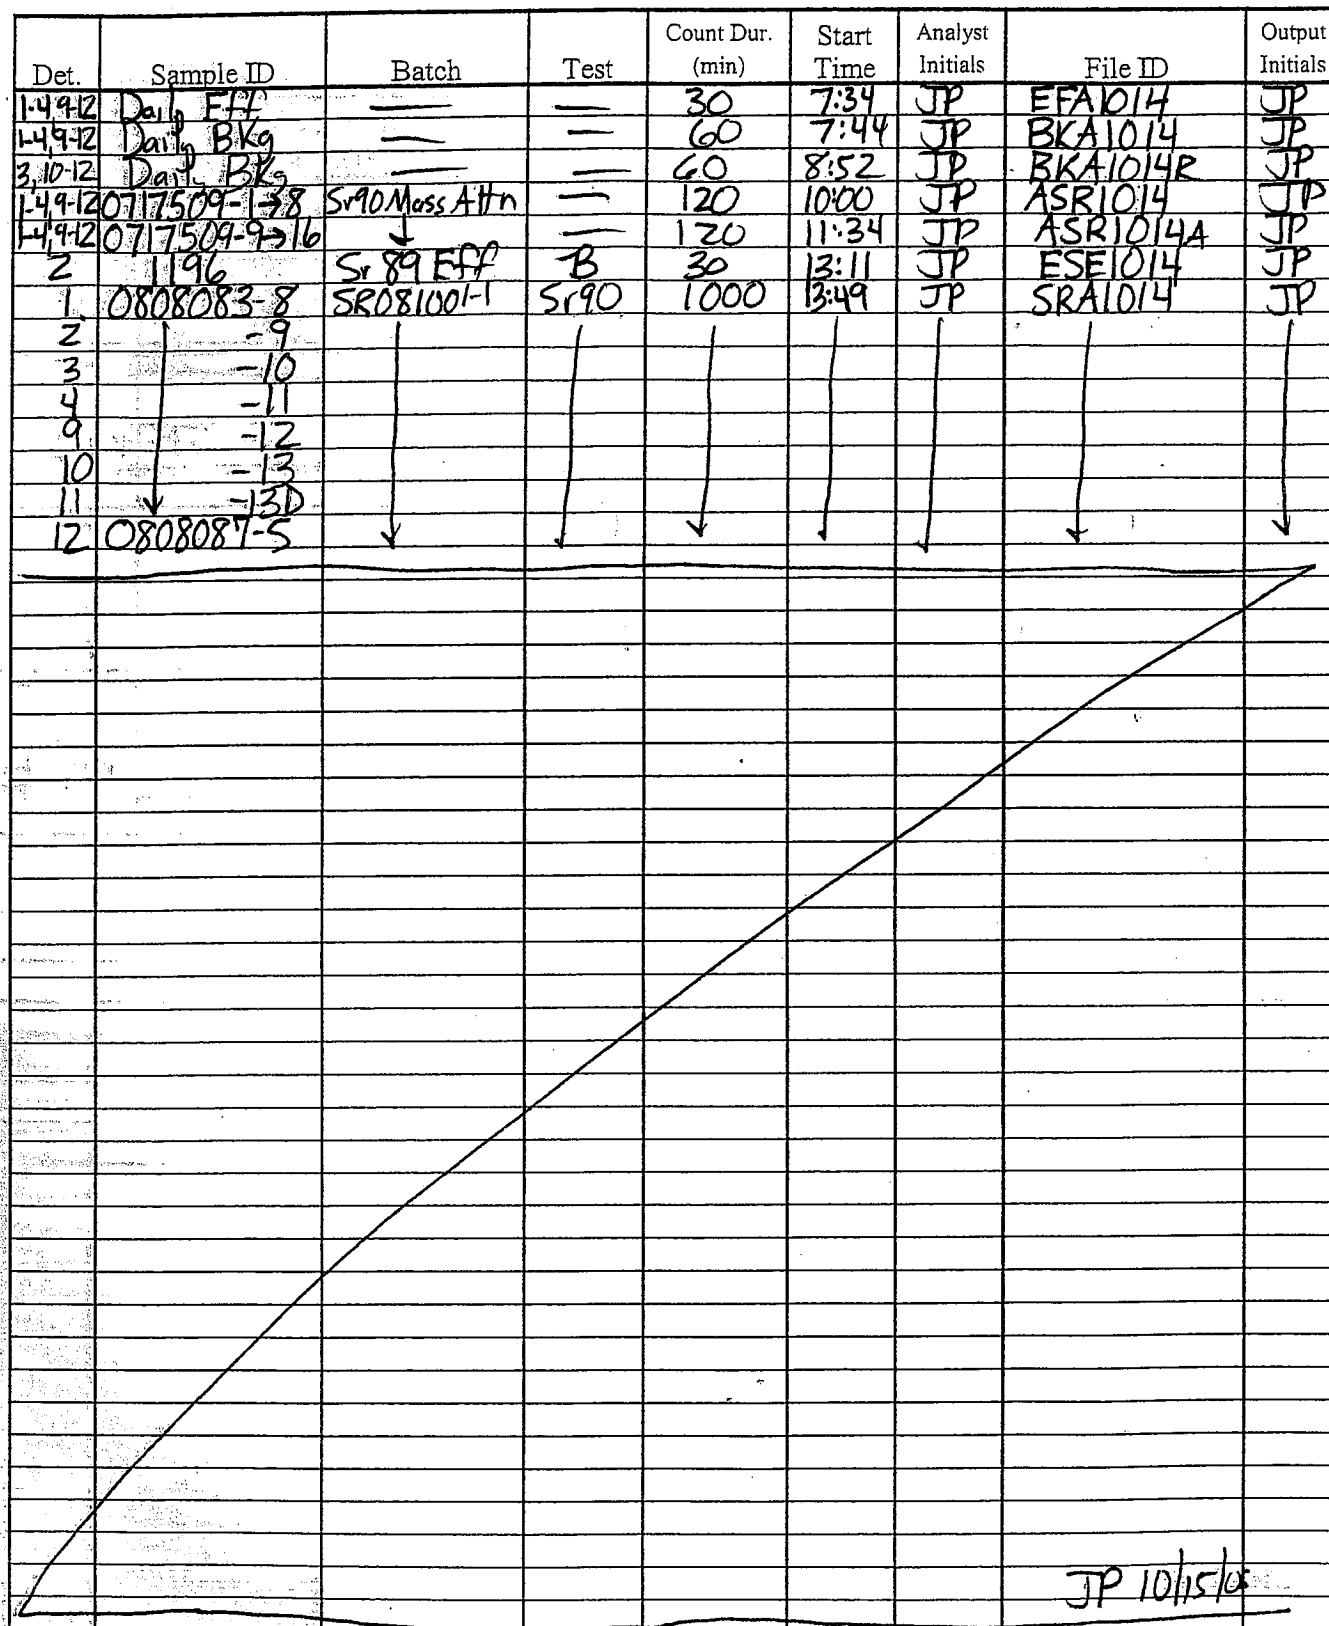 Det. Sample ID Batch Test Count Dur. (min) Start Time Analyst Initials File ID Output Initials
1-4,9-12 Daily Eff — — 30 7:34 JP EFA1014 JP
1-4,9-12 Daily BKg — — 60 7:44 JP BKA1014 JP
3,10-12 Daily BKg — — 60 8:52 JP BKA1014R JP
1-4,9-12 0717509-1→8 Sr90 Mass Attn — 120 10:00 JP ASR1014 JP
1-4,9-12 0717509-9→16 ↓ — 120 11:34 JP ASR1014A JP
2 1196 Sr 89 Eff B 30 13:11 JP ESE1014 JP
1 0808083-8 SR081001-1 Sr90 1000 13:49 JP SRA1014 JP
2 -9
3 -10
4 -11
9 -12
10 -13
11 -13D
12 0808087-5
JP 10/15/